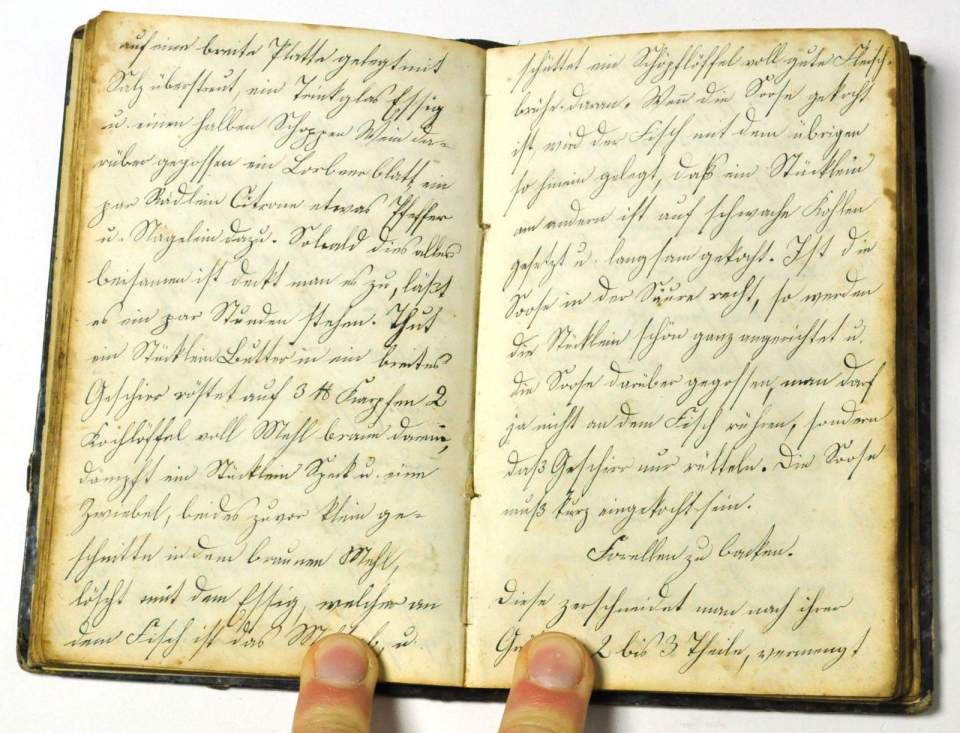 auf eine breite Platte gelegt mit
Salz überstreut, ein Trinkglas Essig
u. einen halben Schoppen Wein da-
rüber gegossen ein Lorbeerblatt, ein
par Rädlein Citrone etwas Pfeffer
u. Nägelein dazu. Sobald dies alles
beisamen ist deckt man es zu, läßt
es ein par Stunden stehen. Thut
ein Stücklein Butter in ein breites
Geschirr röstet auf 3 ℔ Karpfen 2
Kochlöffel voll Mehl braun darein,
dämpft ein Stücklein Speck u. eine
Zwiebel, beides zuvor klein ge-
schnitte in dem braunen Mehl,
löscht mit dem Essig, welcher an
dem Fisch ist das u.
schüttet ein Schöpflöffel voll gute Fleisch-
brühe daran. Wen̄ die Soose gekocht
ist wird der Fisch mit dem übrigen
so hinein gelegt, daß ein Stücklein
am andern ist auf schwache Kohlen
gesetzt u. langsam gekocht. Ist die
Soose in der Säure recht, so werden
die Stücklein schön ganz angerichtet u.
die Soose darüber gegossen, man darf
ja nicht an dem Fisch rühren, sondern
daß Geschirr nur rütteln. Die Soose
muß kurz eingekocht sein.
Forellen zu backen.
Diese zerschneidet man nach ihrer
2 bis 3 Theile, vermengt